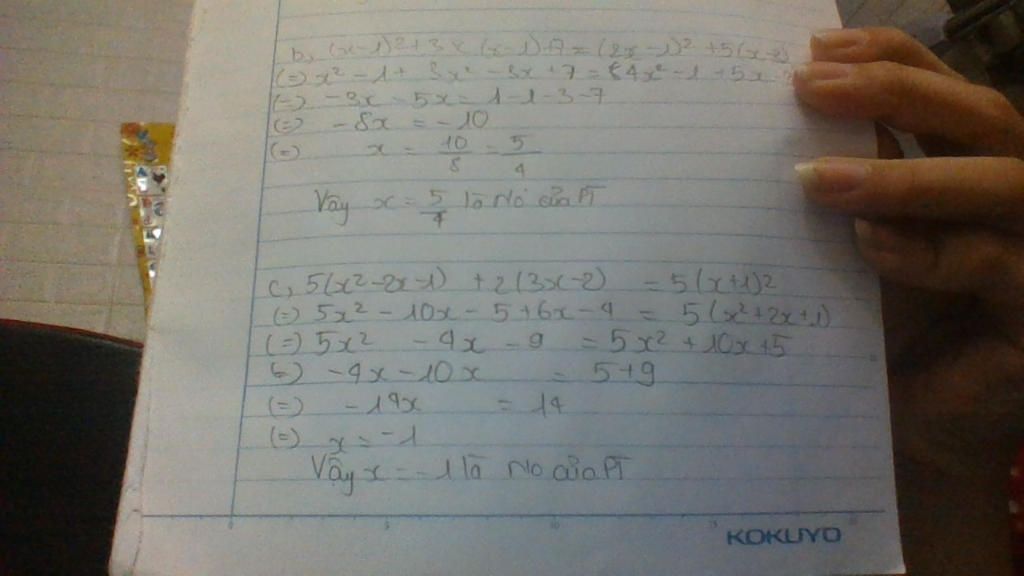 b, (x-1)²+3x(x-1)+7=(2x-1)²+5(x-2)
(=) x² - 1 + 3x² - 3x + 7 = 4x² - 1 + 5x
(=) -3x - 5x = 1 - 1 - 3 - 7
(=) -8x = -10
(=) x = 10/8 = 5/4
Vậy x = 5/4 là No của PT
c, 5(x²-2x-1) + 2(3x-2) = 5(x+1)2
(=) 5x² - 10x - 5 + 6x - 4 = 5(x²+2x+1)
(=) 5x² - 4x - 9 = 5x² + 10x + 5
(=) -4x - 10x = 5+9
(=) -14x = 14
(=) x = -1
Vậy x = -1 là No của PT
KOKUYO